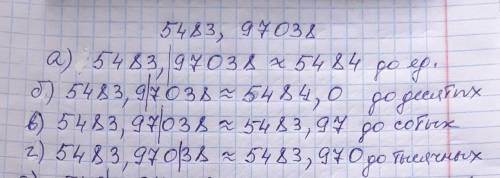 5483, 97038
а) 5483,|97038 ≈ 5484 до ед.
б) 5483,9|7038 ≈ 5484,0 до десятых
в) 5483,97|038 ≈ 5483,97 до сотых
г) 5483,970|38 ≈ 5483,970 до тысячных